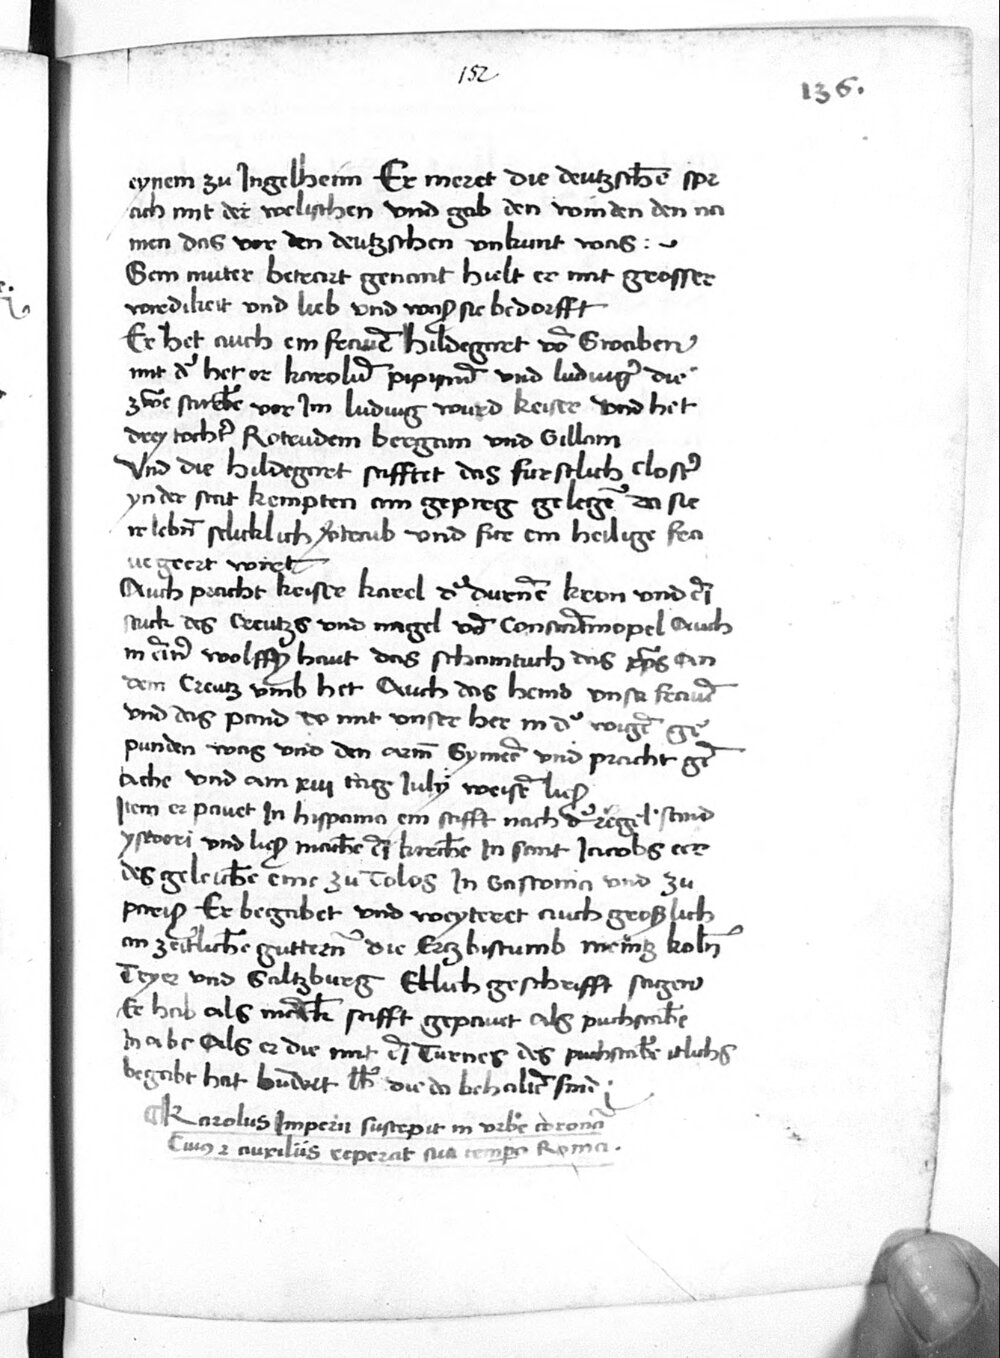 152
136.
eynem zu Ingelheim Er meret die deutzschē spr
ach mit der welischen vnd gab den winden den na
men das vor den deutzschen vnkunt was :~
Sein muter betrart genant hielt er mit grosser
wirdikeit vnd lieb vnd waß sie bedorfft
Er het auch ein frauē hildegart vō Swaben
mit d' het er karolū pipinū vnd ludwig' die
zwē starbē vor Im ludwig wurd keiser vnd het
drey tocht' Rotrudem bergam vnd Gillam
Vnd die hildegart stifftet das furstlich clost'
yn der stat kempten am gepirg gelegē da sie
ir lebn̄ seliklich v'traib vnd fur ein heilige fra
ue geert wirt
Auch pracht keiser karel d' durnē kron vnd ei
stuck des Creutzs vnd nagel vō Constantinopel Auch
in ein' wolffß haut das schamtuch das xp̄s an
dem Creutz vmb het Auch das hemd vnser frauē
vnd das pand do mit vnser her in d' wigē ge
punden was vnd den arm̄ Symeō vnd pracht gē
ache vnd am xiii tag Iulij weisē ließ
Item er pauet In hispania ein stifft nach d' regel sand
ysidori vnd ließ machē ei kirchē In sant Iacobs eer
des geleichē eine zu Tolos In Gasconia vnd zu
pariß Er begabet vnd weyteret auch großlich
an zeitlichē guttern die Erczbistumb meintz koln̄
Tryer vnd Saltzburg Etlich geschrifft sagen
Er hab als manck stifft gepauet als puchstabē
In abc Als er die mit ei Turnes des puchstabē itlichs
begabt hat die da behaltē sind
Karolus Imperii suscepit in vrbe coronā
Cuius auxiliis reperat sua tempa Roma.